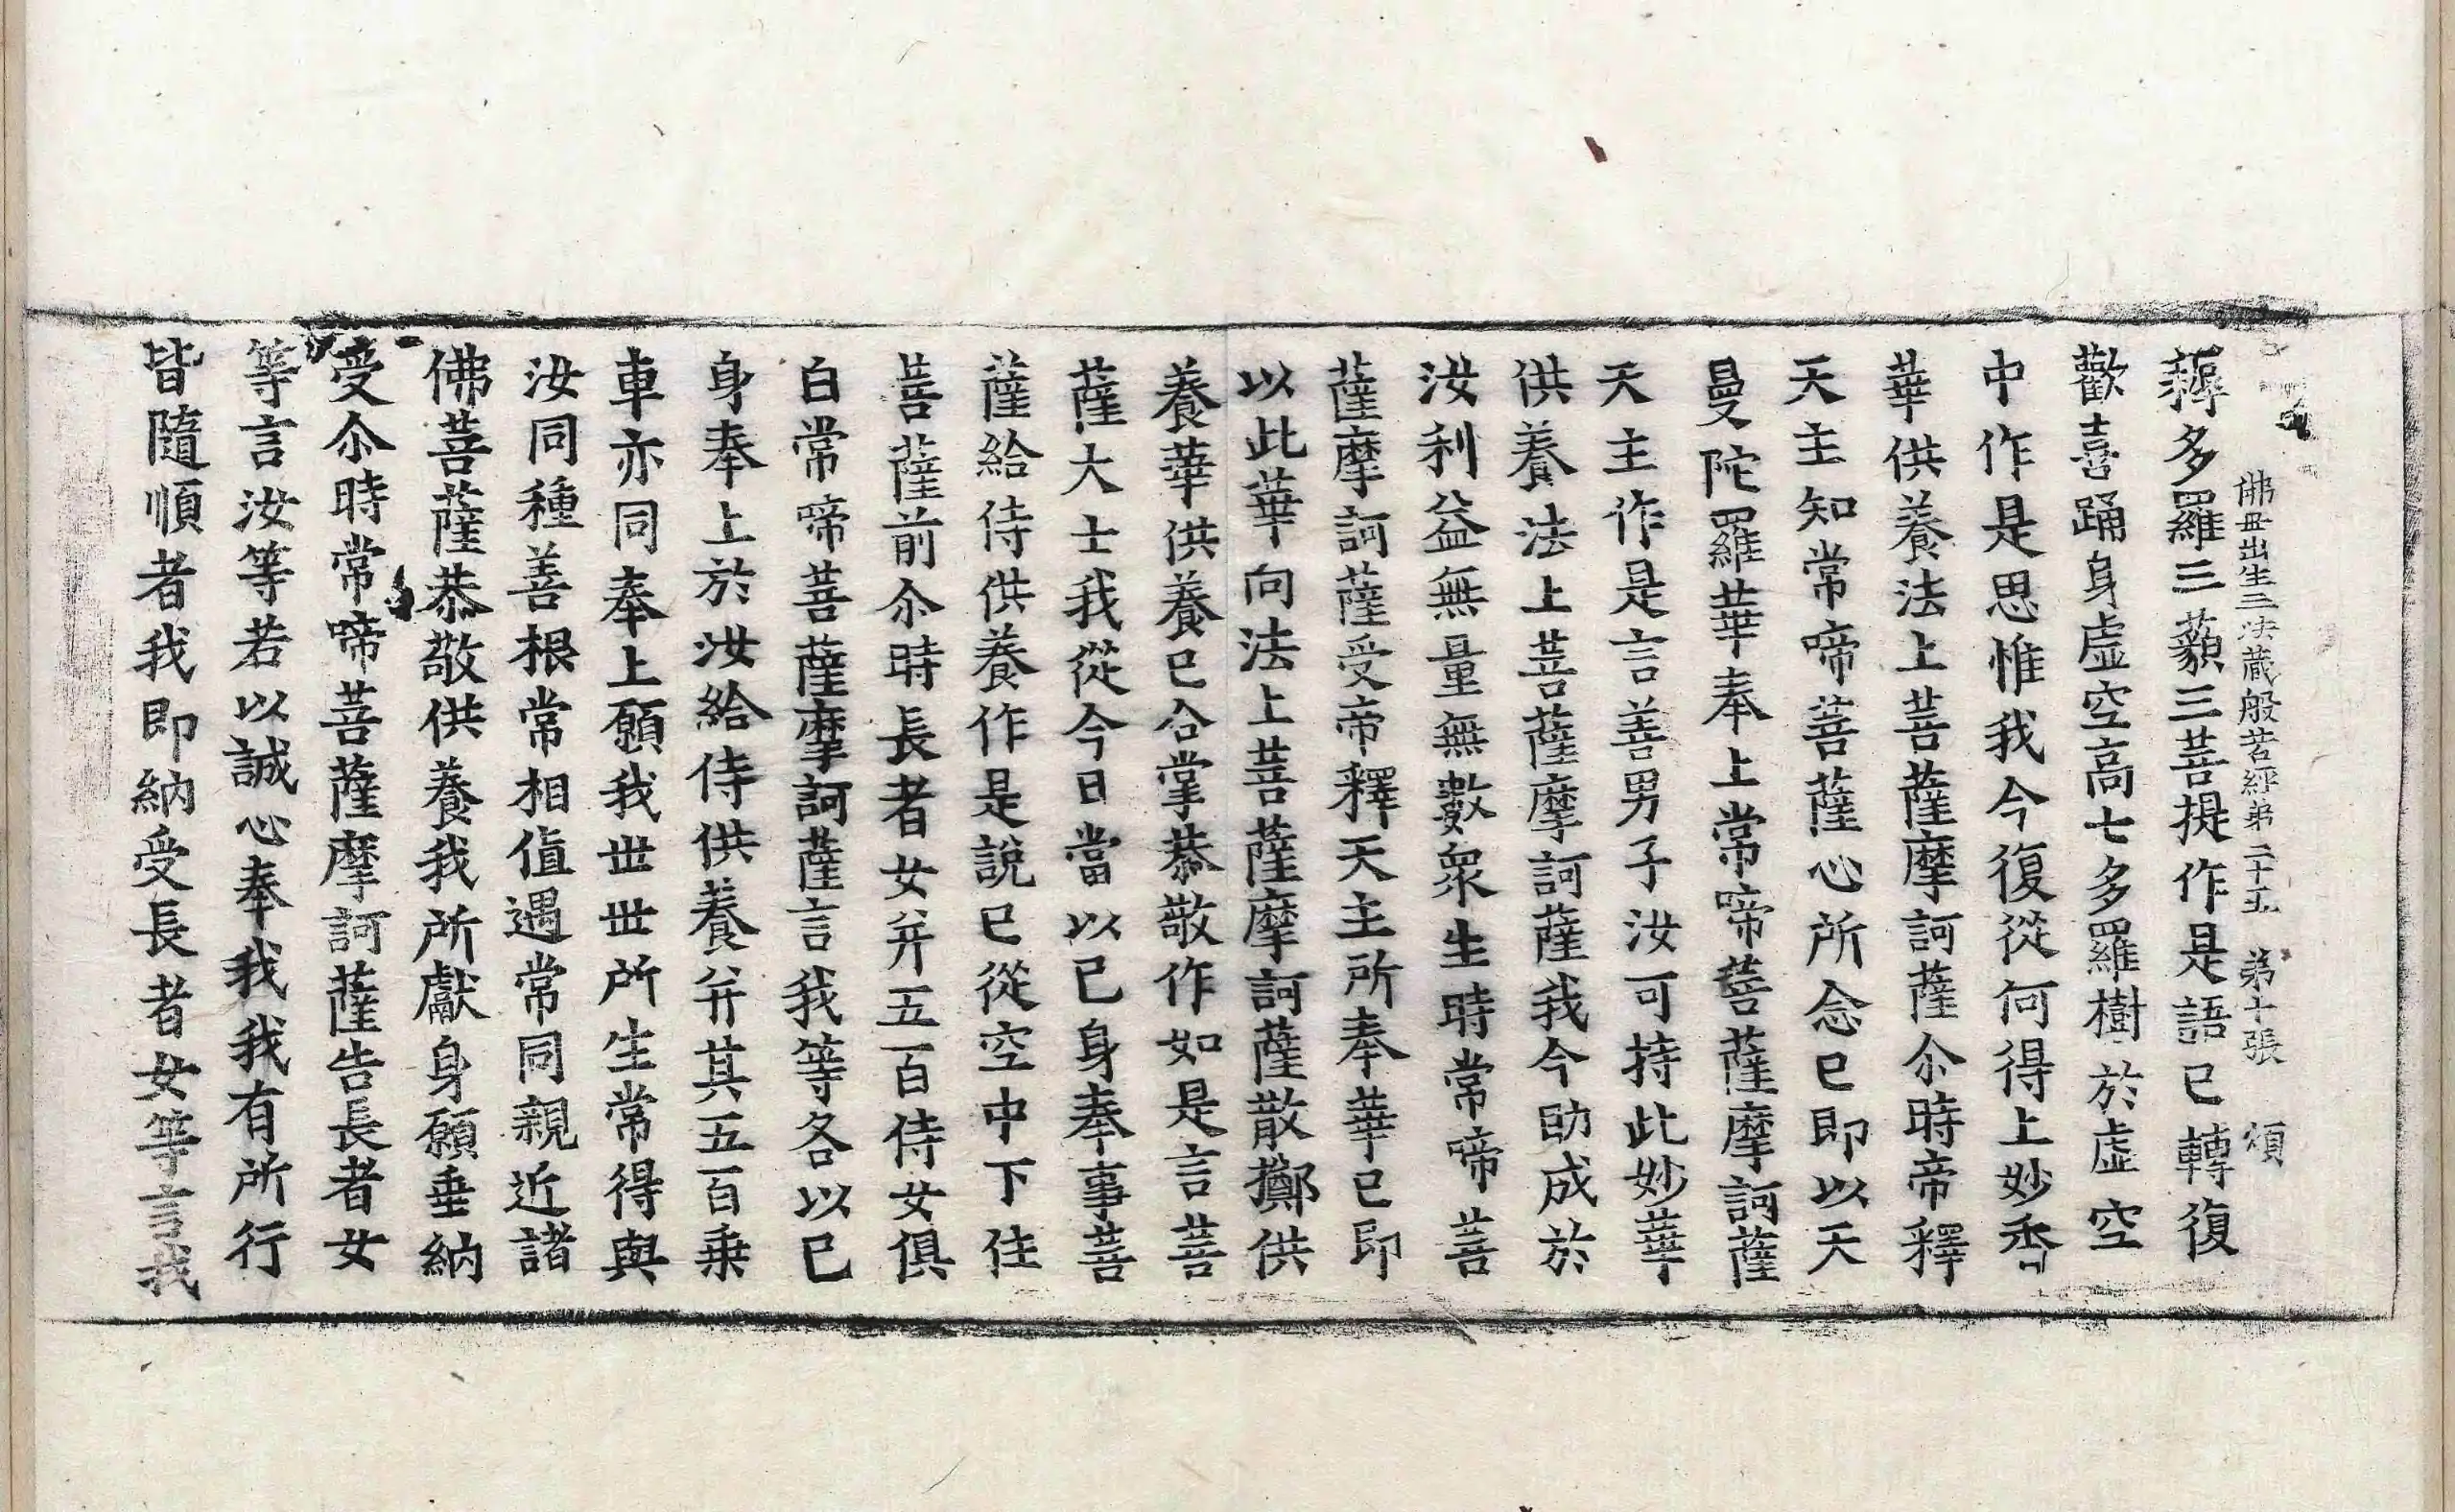 佛毋出生三法蔵般若經弟二十五　弟十張　頌
耨多羅三藐三菩提作是語已轉復
歡喜踊身虛空高七多羅樹於虛空
中作是思惟我今復從何得上妙香
華供養法上菩薩摩訶薩尒時帝釋
天主知常啼菩薩心所念已即以天
曼陀羅華奉上常啼菩薩摩訶薩
天主作是言善男子汝可持此妙華
供養法上菩薩摩訶薩我今助成於
汝利益無量無數衆生時常啼菩
薩摩訶薩受帝釋天主所奉華已即
以此華向法上菩薩摩訶薩散擲供
養華供養已合掌恭敬作如是言菩
薩大士我從今日當以己身奉事菩
薩給侍供養作是說已從空中下住
菩薩前尒時長者女并五百侍女俱
白常啼菩薩摩訶薩言我等各以己
身奉上於汝給侍供養并其五百乗
車亦同奉上願我世世所生常得與
汝同種善根常相值遇常同親近諸
佛菩薩恭敬供養我所獻身願垂納
受尒時常啼菩薩摩訶薩告長者女
等言汝等若以誠心奉我我有所行
皆隨順者我即納受長者女等言我